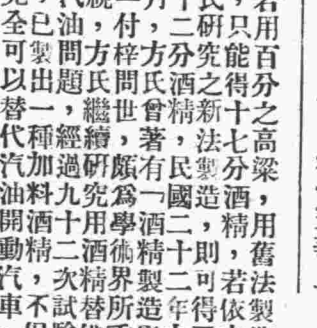 用百分之高粱,用舊法製
只能得十七分酒精,若依
研究之新法製造,則可得
二分酒精,民國二十二年
,方氏曾著有「酒精製造
付梓問世,頗爲學術界所
,方氏繼續研究用酒精替
油問題,經過九十二次試
已製出一種加料酒精,不
全可以替代汽油開動汽車